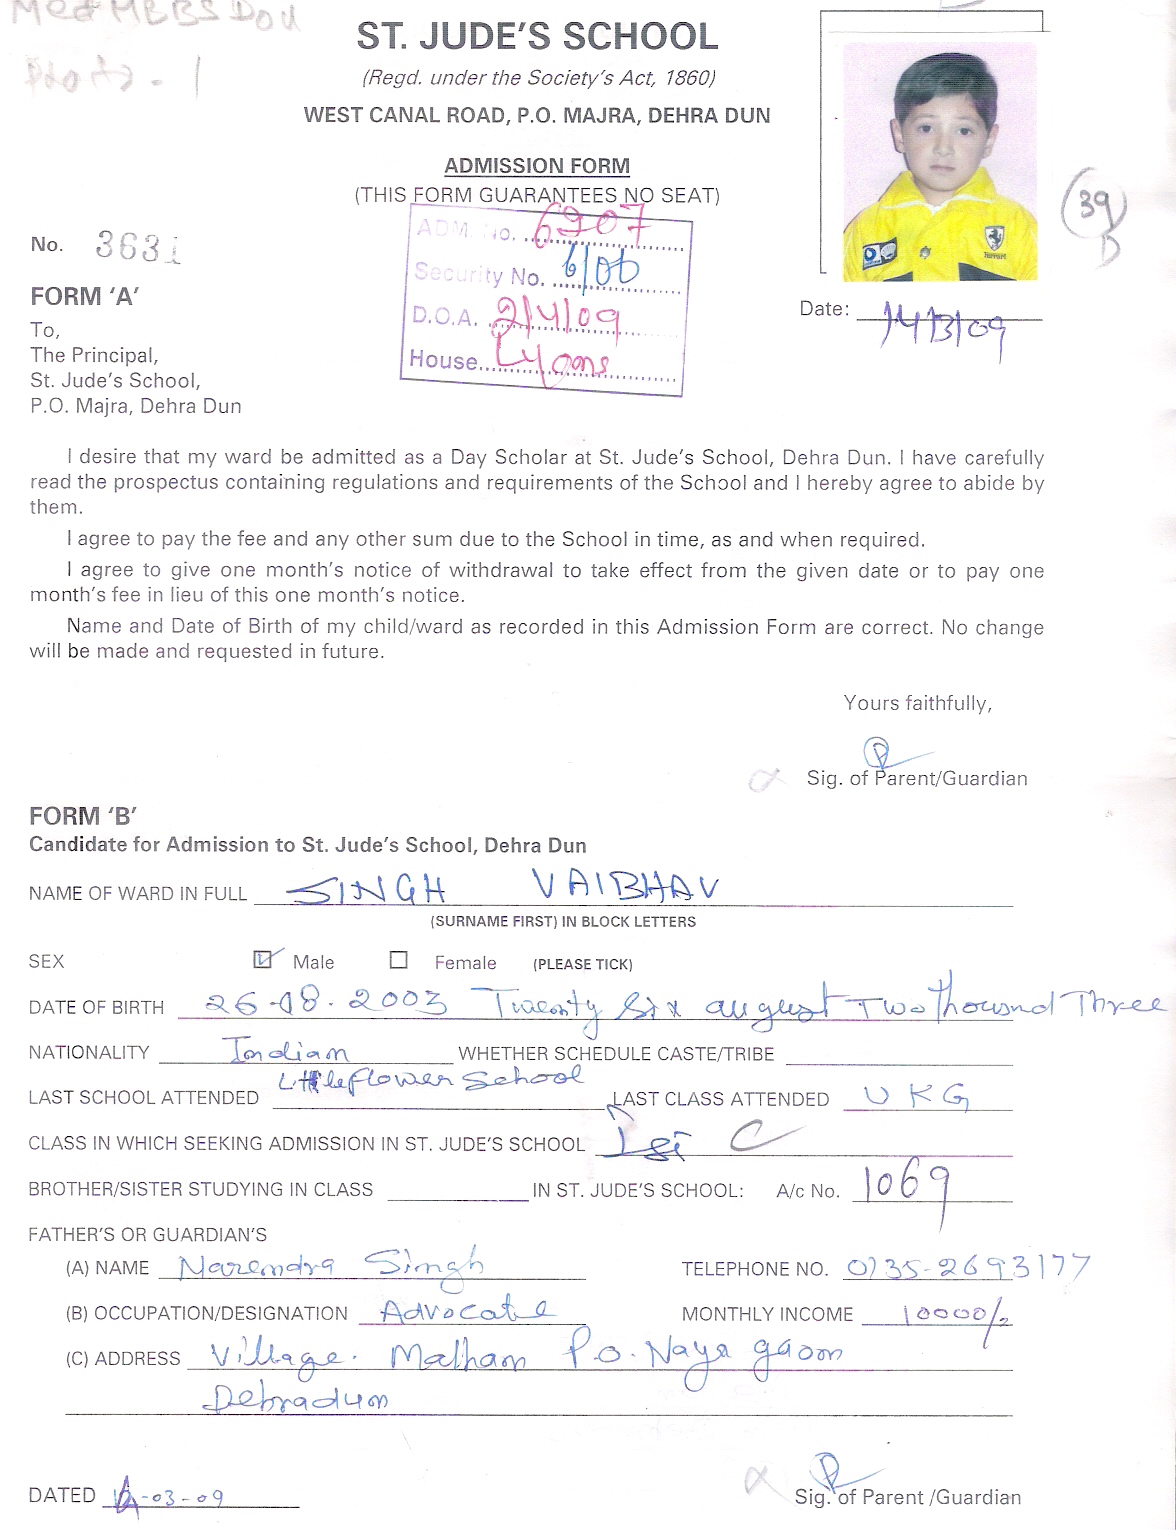 ST. JUDE'S SCHOOL
(Regd. under the Society's Act, 1860)
WEST CANAL ROAD, P.O. MAJRA, DEHRA DUN
ADMISSION FORM
(THIS FORM GUARANTEES NO SEAT)
39
D
No. 3631
ADM. No. 6907
Security No. 6/06
D.O.A. 2/4/09
House Lyons
Ferrari
Date: 14/3/09
FORM 'A'
To,
The Principal,
St. Jude's School,
P.O. Majra, Dehra Dun
I desire that my ward be admitted as a Day Scholar at St. Jude's School, Dehra Dun. I have carefully
read the prospectus containing regulations and requirements of the School and I hereby agree to abide by
them.
I agree to pay the fee and any other sum due to the School in time, as and when required.
I agree to give one month's notice of withdrawal to take effect from the given date or to pay one
month's fee in lieu of this one month's notice.
Name and Date of Birth of my child/ward as recorded in this Admission Form are correct. No change
will be made and requested in future.
Yours faithfully,
Sig. of Parent/Guardian
FORM 'B'
Candidate for Admission to St. Jude's School, Dehra Dun
NAME OF WARD IN FULL SINGH VAIBHAV
(SURNAME FIRST) IN BLOCK LETTERS
SEX Male Female (PLEASE TICK)
DATE OF BIRTH 26-08-2003 Twenty Six august Two Thousand Three
NATIONALITY Indian WHETHER SCHEDULE CASTE/TRIBE
LAST SCHOOL ATTENDED Little flower School LAST CLASS ATTENDED UKG
CLASS IN WHICH SEEKING ADMISSION IN ST. JUDE'S SCHOOL Ist C
BROTHER/SISTER STUDYING IN CLASS IN ST. JUDE'S SCHOOL: A/c No. 1069
FATHER'S OR GUARDIAN'S
(A) NAME Narendra Singh TELEPHONE NO. 0135-2693177
(B) OCCUPATION/DESIGNATION Advocate MONTHLY INCOME 10000/-
(C) ADDRESS Village. Malhan P.O. Naya gaon
Dehradun
DATED -03-09
Sig. of Parent /Guardian